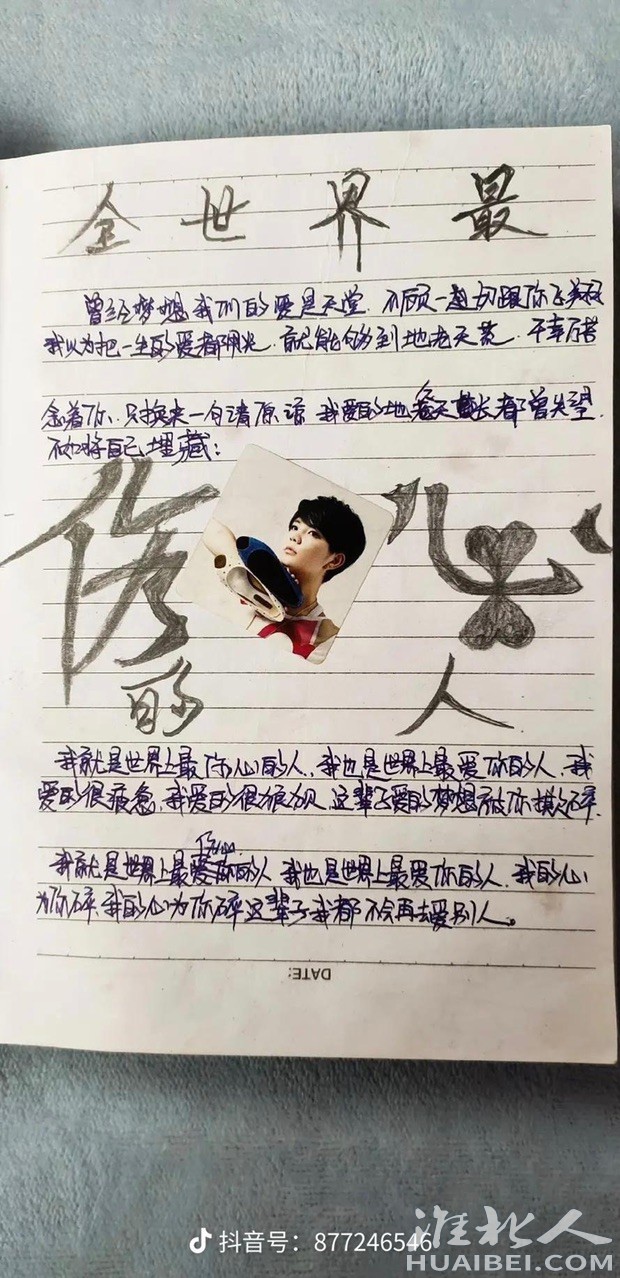 全世界最
曾经梦想我们的爱是天堂.不顾一切跟你飞翔
我以为把一生的爱都用光.就能够到地老天荒 千辛万苦
念着你.只换来一句请原谅 我爱的地老天荒长都曾失望
不如将自己埋藏:
伤心
的人
我就是世界上最伤心的人.我也是世界上最爱你的人.我
爱的很疲惫.我爱的很狼狈.这辈子爱的梦想被你摧碎.
伤心
我就是世界上最爱你的人 我也是世界上最爱你的人.我的心
为你碎 我的心为你碎这辈子我都不会再去爱别人。
DATE:
抖音号: 877246546
淮北人
HUAIBEI.COM